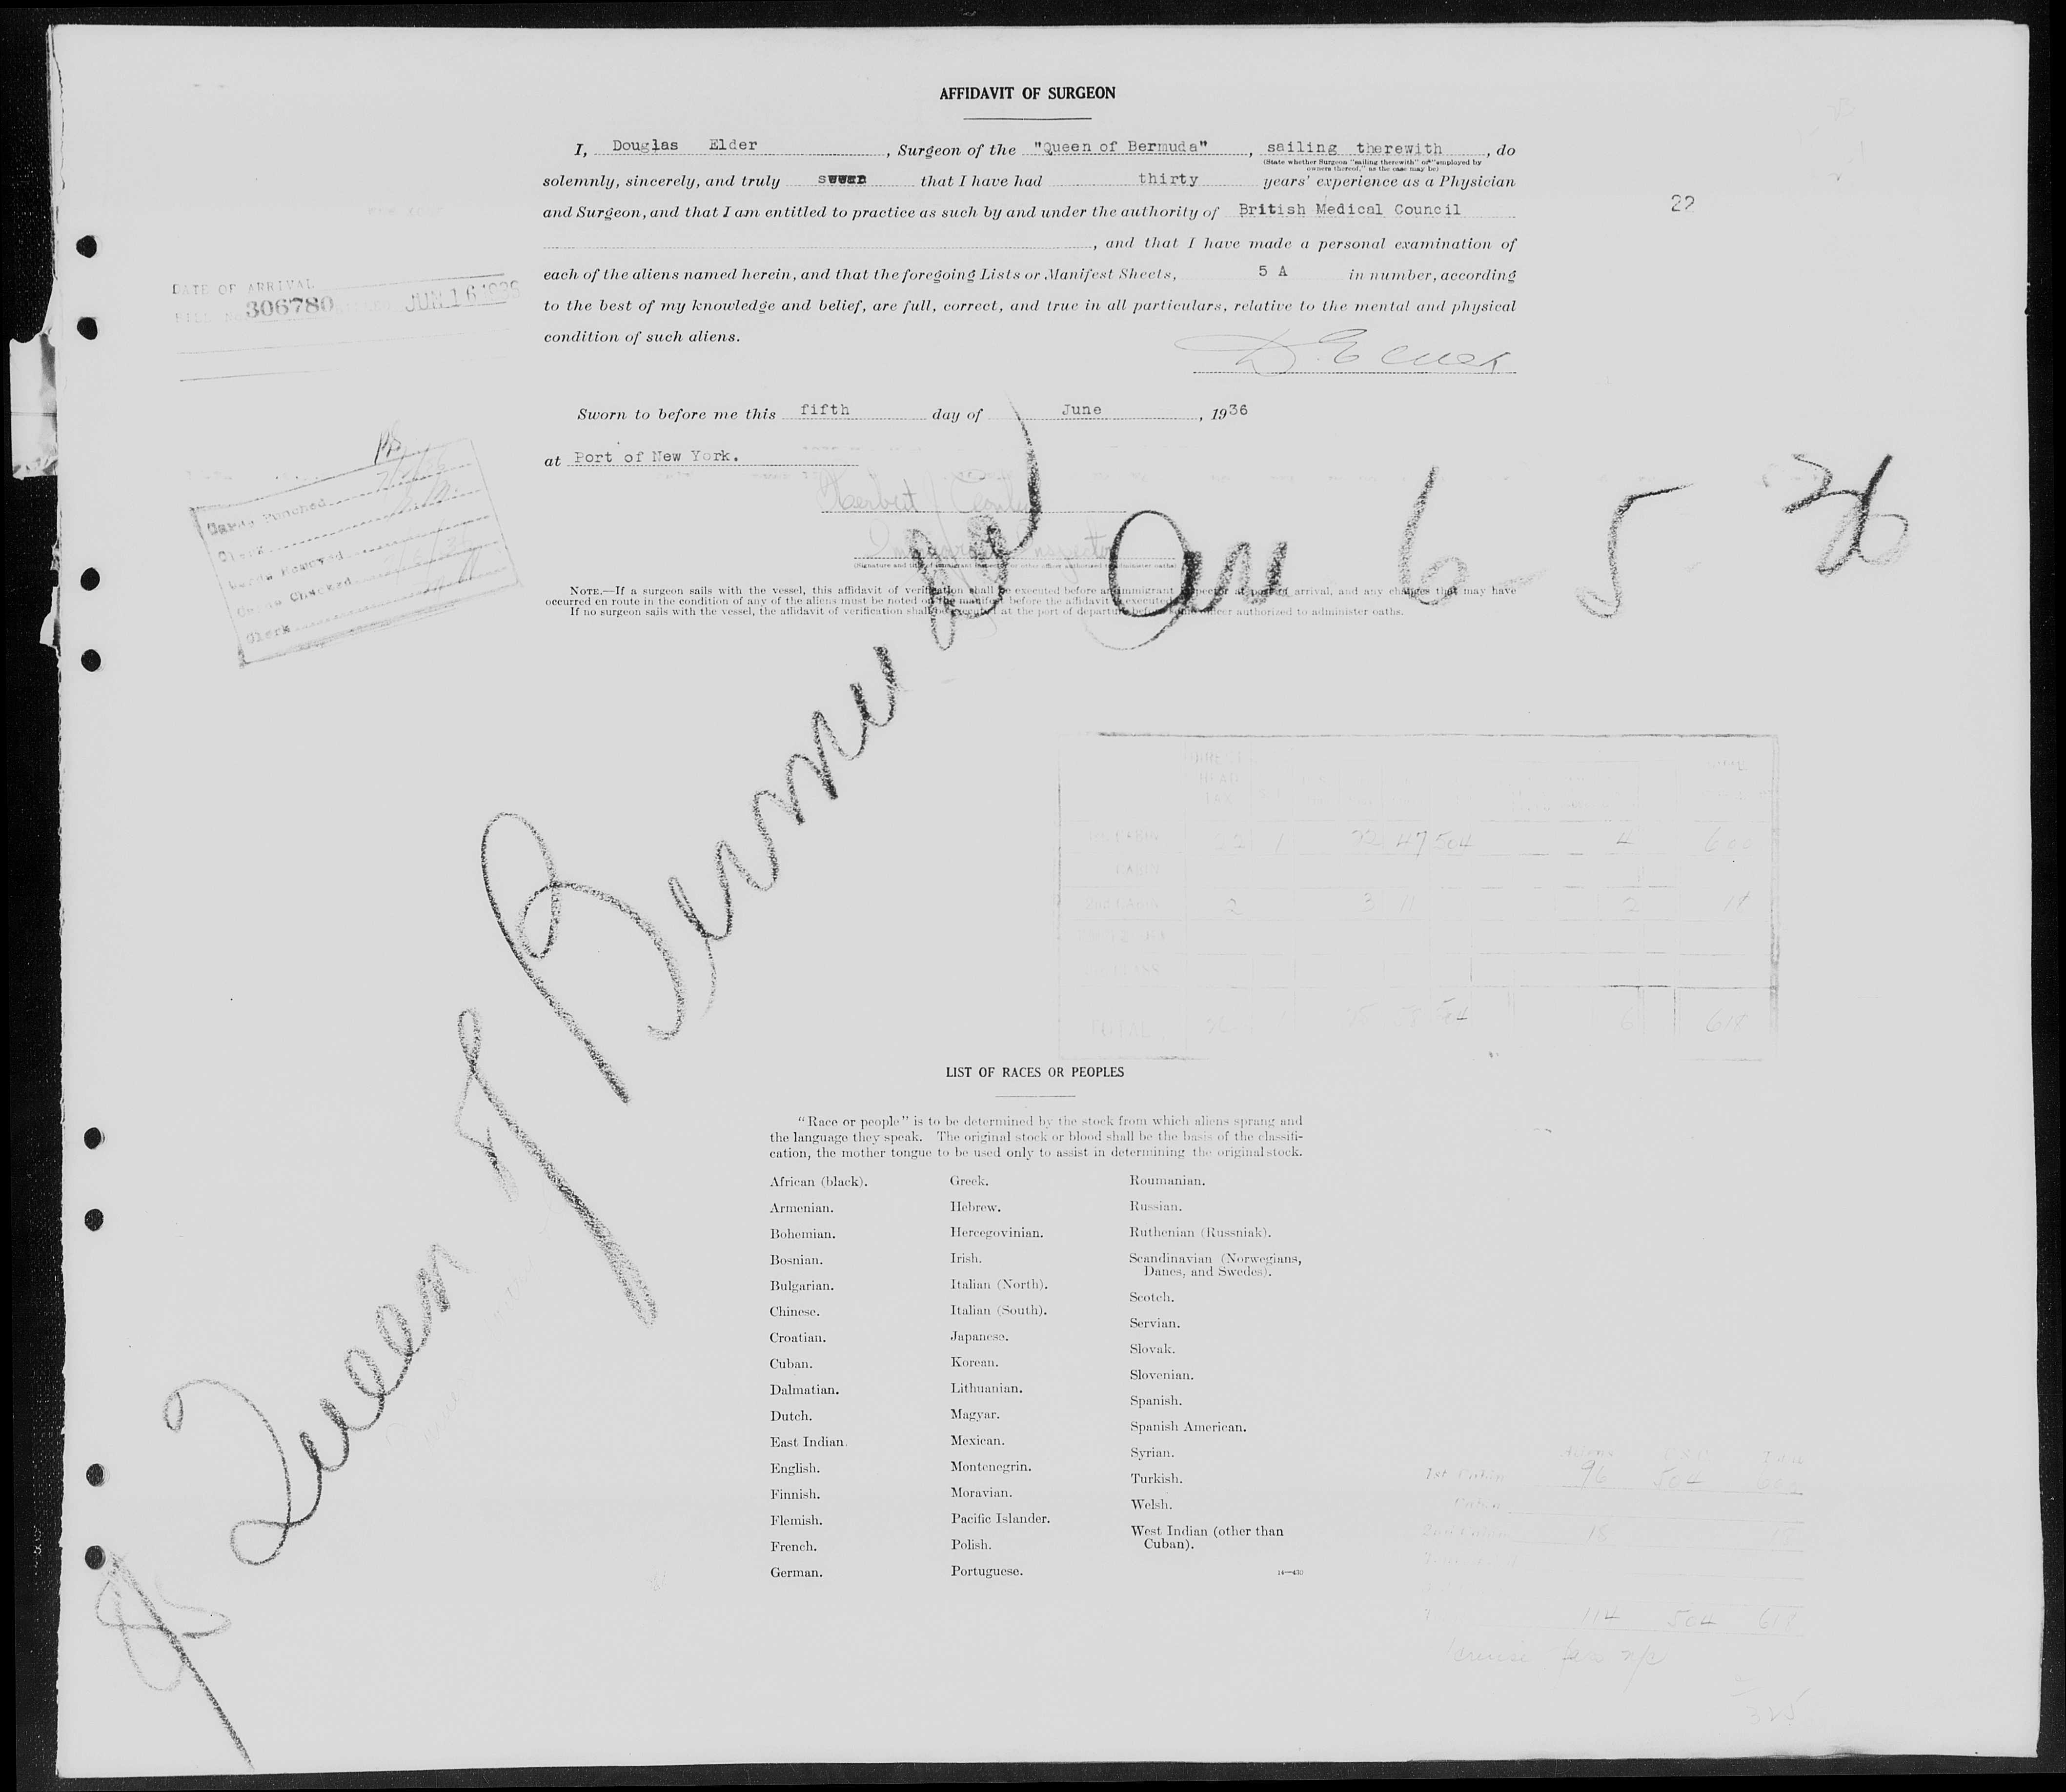 AFFIDAVIT OF SURGEON
I, Douglas Elder, Surgeon of the "Queen of Bermuda", sailing therewith, do
(State whether Surgeon "sailing therewith" or "employed by
owners thereof," as the case may be)
solemnly, sincerely, and truly that I have had thirty years' experience as a Physician
and Surgeon, and that I am entitled to practice as such by and under the authority of British Medical Council
22
, and that I have made a personal examination of
each of the aliens named herein, and that the foregoing Lists or Manifest Sheets, 5 A in number, according
DATE OF ARRIVAL
306780 JUN 16 1936
to the best of my knowledge and belief, are full, correct, and true in all particulars, relative to the mental and physical
condition of such aliens.
Sworn to before me this fifth day of June, 1936
at Port of New York.
Cards Punched
Clerk
Cards Checked
Clerk
Herbert
Immigrant Inspector
(Signature and title of immigrant inspector or other officer authorized to administer oaths)
NOTE.—If a surgeon sails with the vessel, this affidavit of verification shall be executed before an immigrant inspector at port of arrival, and any changes that may have
occurred en route in the condition of any of the aliens must be noted on the manifest before the affidavit is executed.
If no surgeon sails with the vessel, the affidavit of verification shall be executed at the port of departure before some officer authorized to administer oaths.
Queen of Bermuda
Arr 6-5-36
DIRECT
HEAD
TAX
1st CABIN 22 1 22 47 504 4 600
CABIN
2nd CABIN 2 3 11 2 18
TOTAL 504 6 618
LIST OF RACES OR PEOPLES
"Race or people" is to be determined by the stock from which aliens sprang and
the language they speak. The original stock or blood shall be the basis of the classifi-
cation, the mother tongue to be used only to assist in determining the original stock.
African (black).
Armenian.
Bohemian.
Bosnian.
Bulgarian.
Chinese.
Croatian.
Cuban.
Dalmatian.
Dutch.
East Indian.
English.
Finnish.
Flemish.
French.
German.
Greek.
Hebrew.
Hercegovinian.
Irish.
Italian (North).
Italian (South).
Japanese.
Korean.
Lithuanian.
Magyar.
Mexican.
Montenegrin.
Moravian.
Pacific Islander.
Polish.
Portuguese.
Roumanian.
Russian.
Ruthenian (Russniak).
Scandinavian (Norwegians,
Danes, and Swedes).
Scotch.
Servian.
Slovak.
Slovenian.
Spanish.
Spanish American.
Syrian.
Turkish.
Welsh.
West Indian (other than
Cuban).
14—430
Aliens U.S.C. Total
1st Cabin 96 504 600
Cabin
2nd Cabin 18 18
114 504 618
325